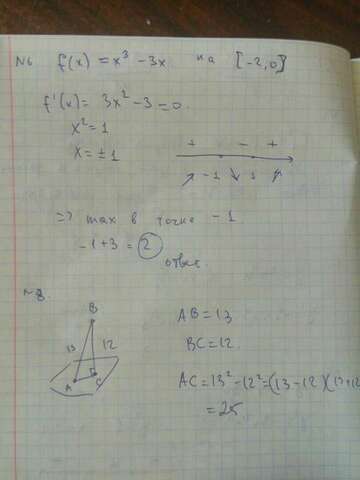 №6 f(x) = x³ - 3x на [-2,0]
f'(x) = 3x² - 3 = 0.
x² = 1
x = ±1
+ - +
↗ -1 ↘ 1 ↗
=> max в точке -1
-1+3 = 2
ответ.
№8.
B
13 12
A C
AB = 13
BC = 12
AC = 13² - 12² = (13 - 12)(13+12
= 25